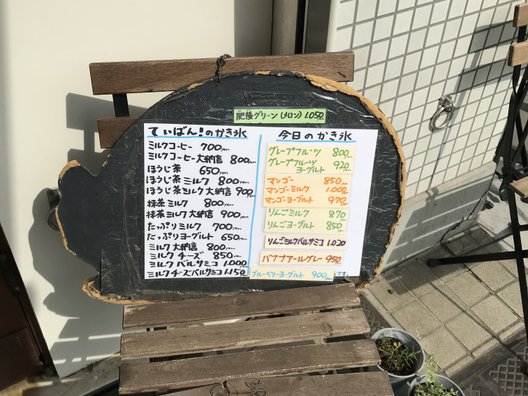 肥後グリーン(メロン) 1050
ていばん!のかき氷
ミルクコーヒー 700
ミルクコーヒー大納言 800
ほうじ茶 650
ほうじ茶ミルク 800
ほうじ茶ミルク大納言 900
抹茶ミルク 800
抹茶ミルク大納言 900
たっぷりミルク 700
たっぷりヨーグルト 650
ミルク大納言 800
ミルクチーズ 850
ミルクバルサミコ 1,000
ミルクチーズバルサミコ 1,150
今日のかき氷
グレープフルーツ 800
グレープフルーツ
ヨーグルト 920
マンゴー 850
マンゴーミルク 1,000
マンゴーヨーグルト 970
りんごミルク 870
りんごヨーグルト 850
りんごミルクバルサミコ 1,020
バナナアールグレー 950
ブルーベリーヨーグルト 900
です。